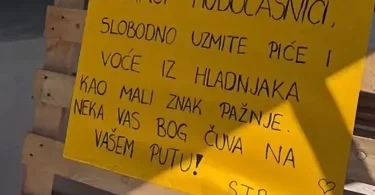 HODOČASNICI,
SLOBODNO UZMITE PIĆE I
VOĆE IZ HLADNJAKA
KAO MALI ZNAK PAŽNJE.
NEKA VAS BOG ČUVA NA
VAŠEM PUTU!